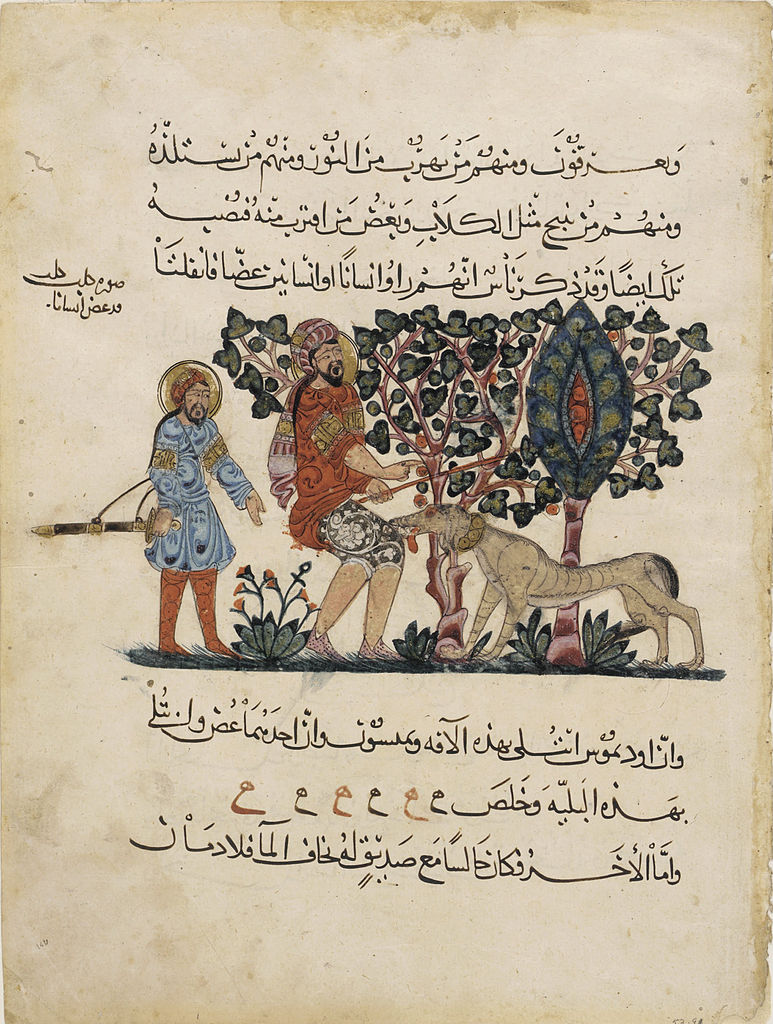 ويعرقون ومنهم من يهرب من النور ومنهم من يستلذه
ومنهم من ينبح مثل الكلاب وبعض من اقترب منه فتصيبه
تلك ايضا وقد ذكر ناس انهم راوا انسانا او انسانين عضا فانفلتا
صورة كلب كلب
قد عض انسانا
وان اوديموس ابتلى بهذه الآفة وان احدهما عض وابتلي
بهذه البلية وخلص ه ه ه ه ه ه
واما الأخر فكان جالسا مع صديق له يخاف الما فلا دمان